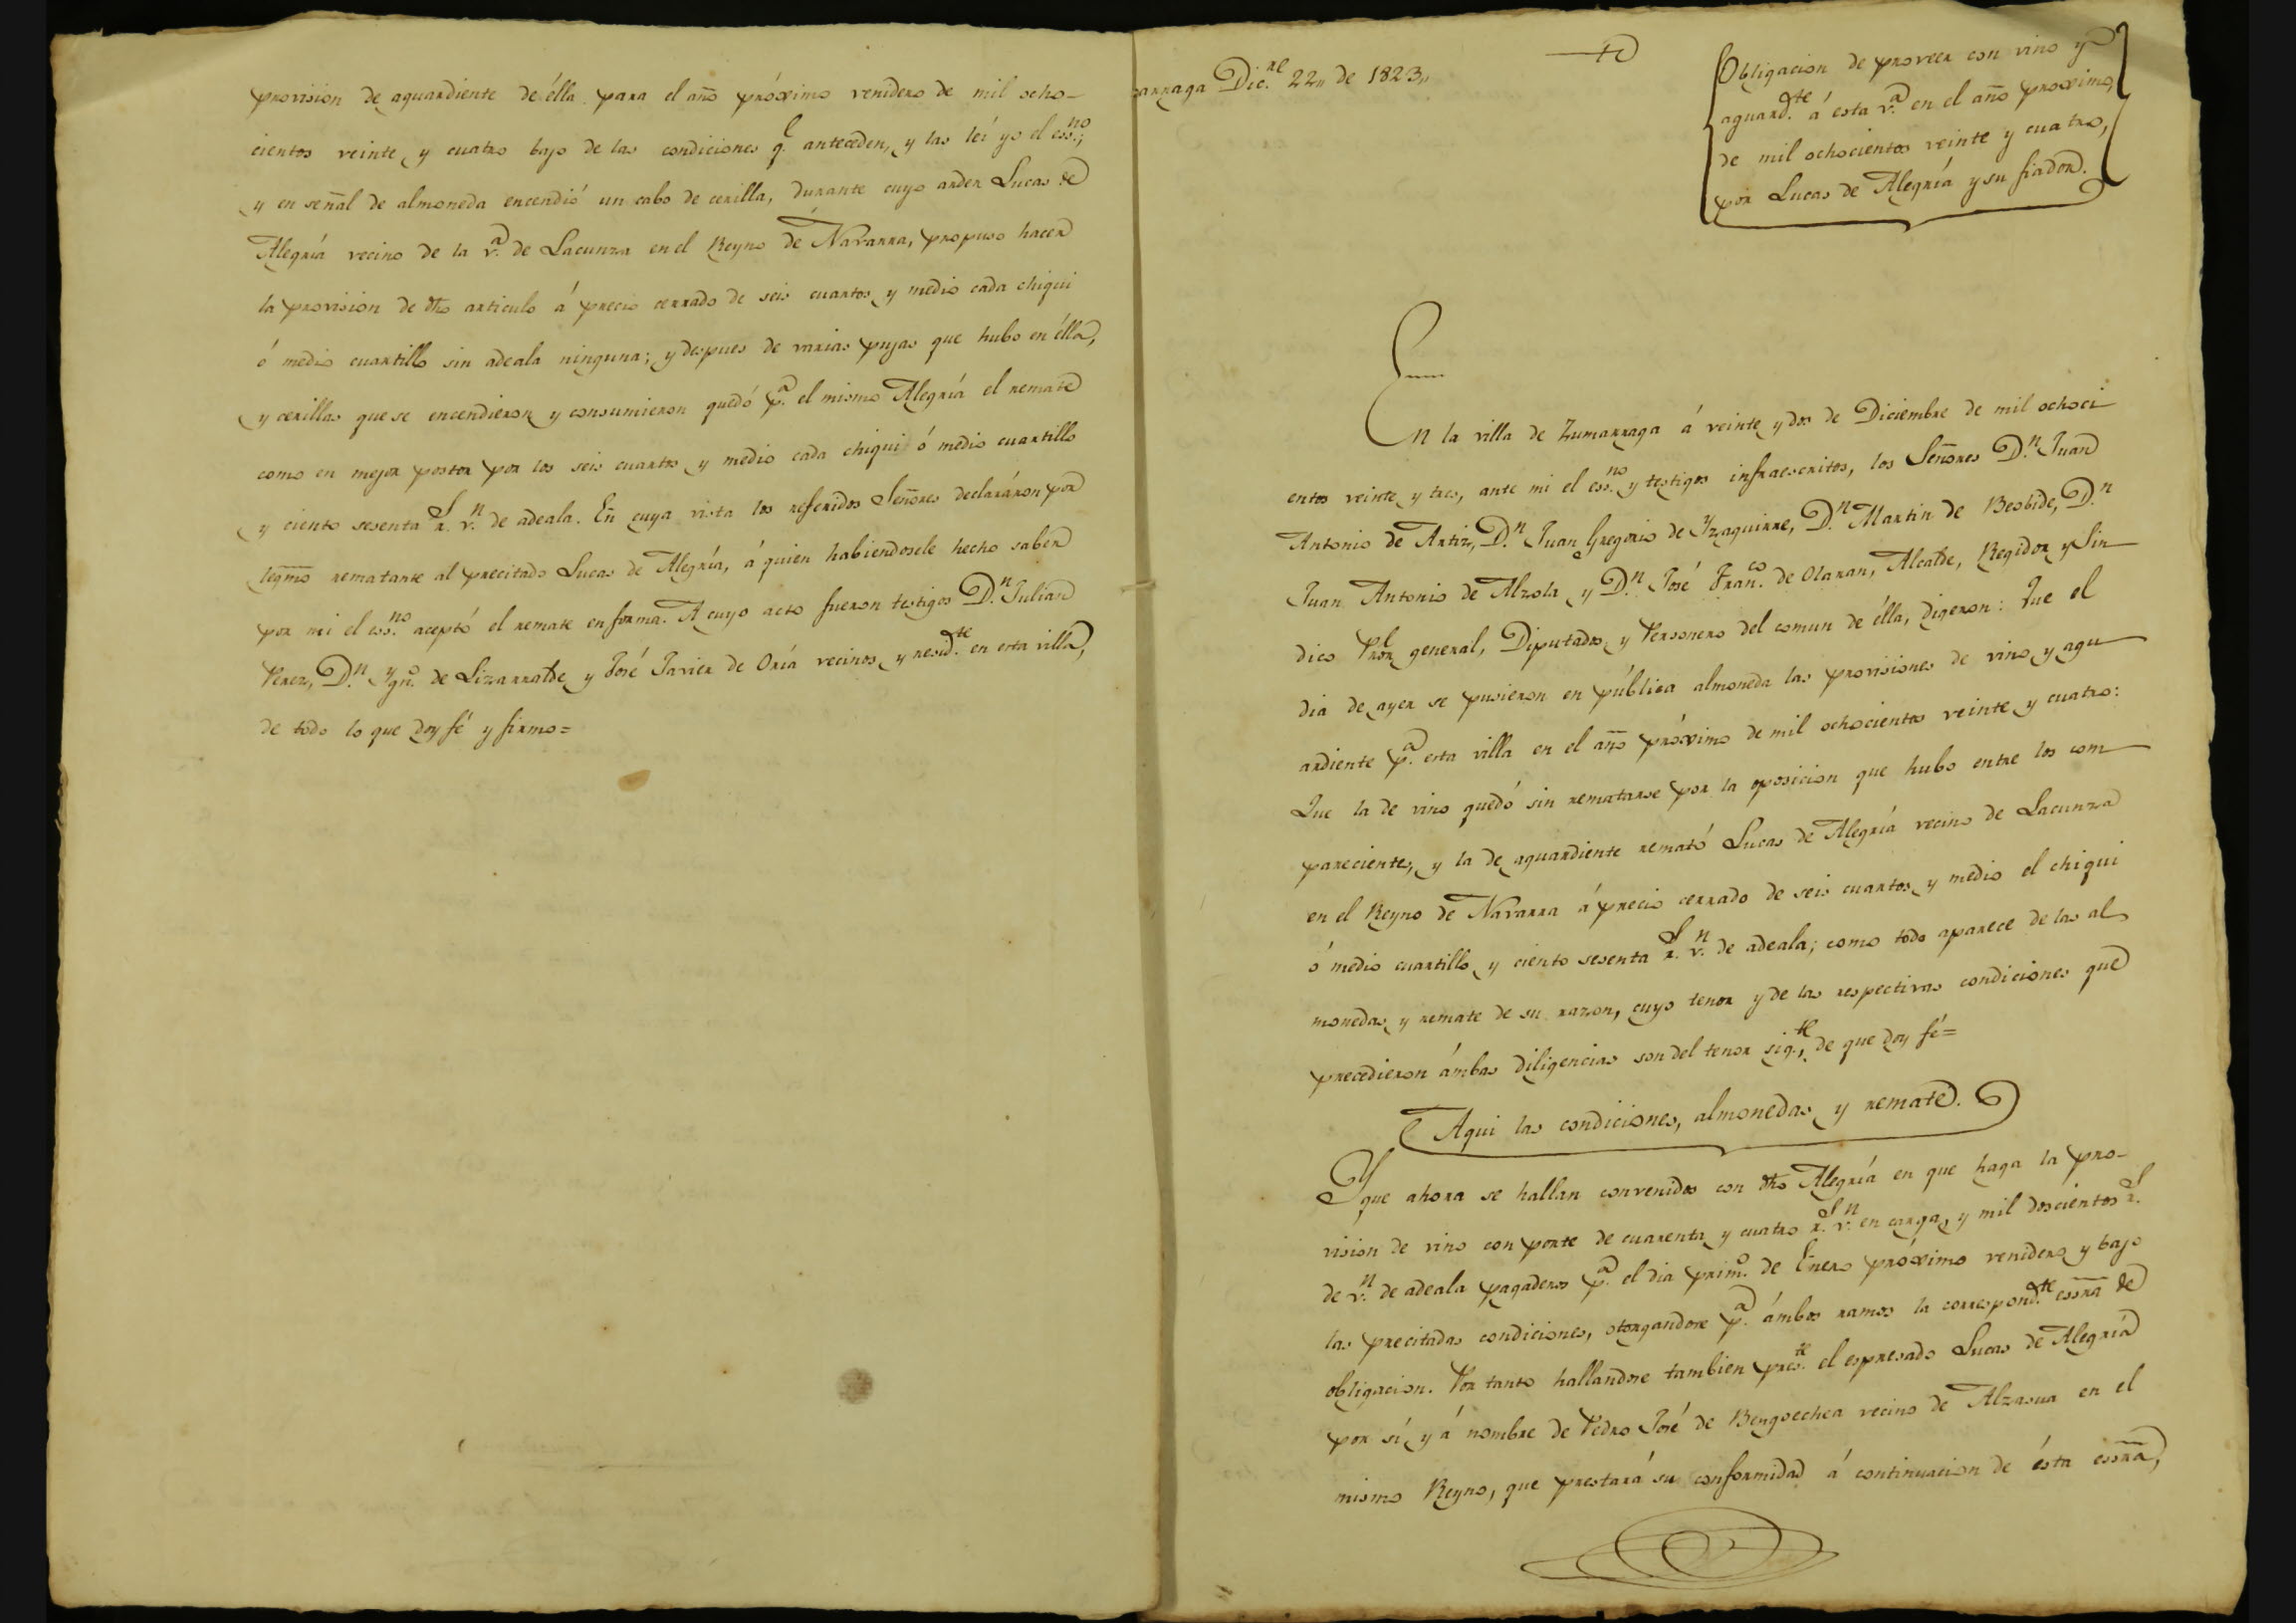 provision de aguardiente de élla para el año próximo venidero de mil ocho-
cientos veinte y cuatro bajo de las condiciones q.e anteceden, y las leí yo el ess.no;
y en señal de almoneda encendió un cabo de cerilla, durante cuyo arder Lucas de
Alegría vecino de la v.a de Lacunza en el Reyno de Navarra, propuso hacer
la provision de dho articulo á precio cerrado de seis cuartos y medio cada chiqui
ó medio cuartillo sin adeala ninguna; y despues de varias pujas que hubo en élla,
y cerillas que se encendieron y consumieron quedó p.a el mismo Alegría el remate
como en mejor postor por los seis cuartos y medio cada chiqui ó medio cuartillo
y ciento sesenta r.s v.n de adeala. En cuya vista los referidos Señores declaráron por
legmo rematante al precitado Lucas de Alegría, á quien habiendosele hecho saber
por mi el ess.no aceptó el remate en forma. A cuyo acto fueron testigos D.n Julian
Perez, D.n Ygn.o de Lizarralde y José Javier de Oria vecinos y resid.te en esta villa,
de todo lo que doy fé y firmo=
arraga Dic.re 22,, de 1823,,
Obligacion de proveer con vino y
aguard.te á esta v.a en el año proximo,
de mil ochocientos veinte y cuatro,
por Lucas de Alegría y su fiador.
En la villa de Zumarraga á veinte y dos de Diciembre de mil ochoci
entos veinte y tres, ante mi el ess.no y testigos infraescritos, los Señores D.n Juan
Antonio de Artiz, D.n Juan Gregorio de Yzaguirre, D.n Martin de Besbide, D.n
Juan Antonio de Alzola y D.n José Fran.co de Olaran, Alcalde, Regidor y Sin
dico Pror.l general, Diputados y Personero del comun de élla, digeron: Que el
dia de ayer se pusieron en pública almoneda las provisiones de vino y agu
ardiente p.a esta villa en el año próximo de mil ochocientos veinte y cuatro:
Que la de vino quedó sin rematarse por la oposicion que hubo entre los com
parecientes, y la de aguardiente remató Lucas de Alegría vecino de Lacunza
en el Reyno de Navarra á precio cerrado de seis cuartos y medio el chiqui
ó medio cuartillo y ciento sesenta r.s v.n de adeala; como todo aparece de las al
monedas y remate de su razon, cuyo tenor y de las respectivas condiciones que
precedieron ámbas diligencias son del tenor sig.te, de que doy fé=
Aqui las condiciones, almonedas y remate.
Y que ahora se hallan convenidos con dho Alegría en que haga la pro-
vision de vino con porte de cuarenta y cuatro r.s v.n en carga, y mil doscientos r.s
de v.n de adeala pagaderos p.a el dia prim.o de Enero próximo venidero y bajo
las precitadas condiciones, otorgandose p.a ámbos ramos la correspond.te essra de
obligacion. Por tanto hallandose tambien pres.te el espresado Lucas de Alegría
por sí y á nombre de Pedro José de Bengoechea vecino de Alzasua en el
mismo Reyno, que prestará su conformidad á continuacion de ésta essra,